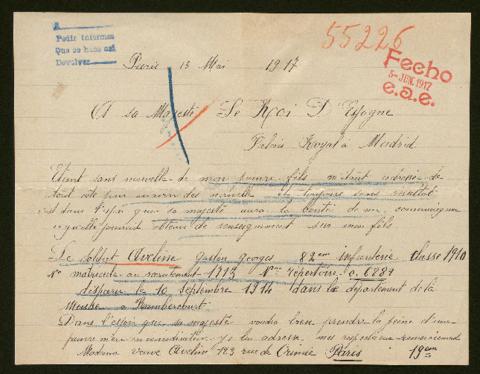 Pedir informes
Que se hace así
Devolver
55226
Fecho
5 JUN. 1917
e.a.e.
Paris 13 Mai 1917
A sa Majesté Le Roi D'Espagne
Palais Royal a Madrid
Etant sans nouvelle de mon pauvre fils m'étant adressé de
tout côté pour avoir des nouvelle et toujours sans résultat
dans l'espoir que sa majesté aura la bonté de me communiquer
obtenir de renseignement sur mon fils
Le soldat Aveline Gaston Georges 82em infanterie Classe 1910
No matricule au recrutement 1713 Nro répertoire 6884
disparu le 10 septembre 1914 dans le département de la
Meuse a Rembercourt
Dans l'espoir que sa majesté voudra bien prendre la peine d'une
pauvre mere en considération je lui adresse mes respectueux remerciements
Madame veuve Aveline 123 rue de Crimée Paris 19em